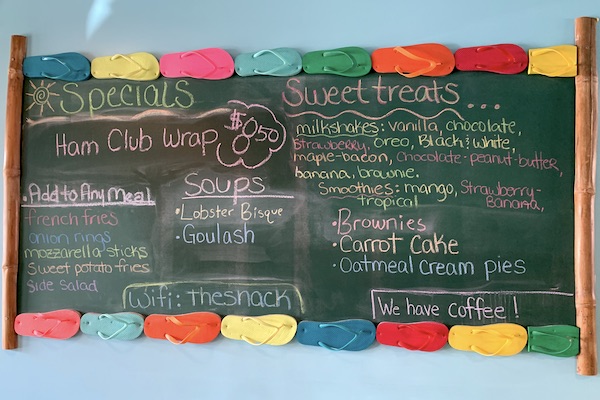 Specials
Ham Club Wrap
Add to Any Meal
french fries
onion rings
mozzarella sticks
Sweet potato fries
Side salad
Soups
• Lobster Bisque
• Goulash
Wifi: theshack
Sweet treats...
milkshakes: vanilla, chocolate,
Strawberry, oreo, Black & white,
maple-bacon, Chocolate-peanut-butter,
banana, brownie.
Smoothies: mango, Strawberry-
tropical Banana,
• Brownies
• Carrot Cake
• Oatmeal Cream pies
We have Coffee!